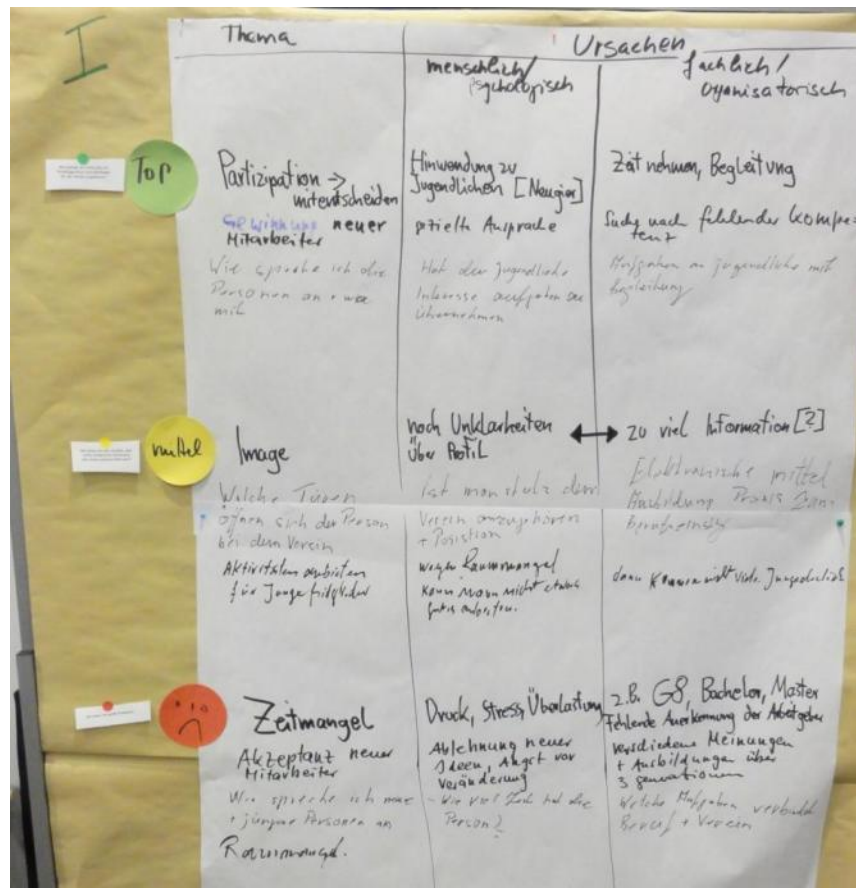 I
Thema
Ursachen
menschlich/
psychologisch
fachlich/
organisatorisch
Top
Partizipation →
mitentscheiden
Gewinnung neuer
Mitarbeiter
Wie spreche ich die
Personen an + was
mit
Hinwendung zu
Jugendlichen [Neugier]
gezielte Ansprache
Hat der Jugendliche
Interesse aufgaben zu
übernehmen
Zeit nehmen, Begleitung
Suche nach fehlender Kompe-
tenz
Aufgaben an Jugendliche mit
Begleitung
mittel
Image
Welche Türen
öffnen sich der Person
bei dem Verein
Aktivitäten anbieten
für Junge Mitglieder
noch Unklarheiten
über Profil
Ist man stolz dem
Verein anzugehören
+ Position
wegen Raummangel
kann man nicht etwas
gutes anbieten.
↔ zu viel Information [?]
Elektronische mittel
Ausbildung Praxis
Berufseinstieg
dann kommen nicht viele Jugendliche
Zeitmangel
Akzeptanz neuer
Mitarbeiter
Wie spreche ich neue
+ jüngere Personen an
Raummangel.
Druck, Stress, Überlastung
Ablehnung neuer
Ideen, Angst vor
Veränderung
- Wie viel Zeit hat die
Person?
z.B. G8, Bachelor, Master
Fehlende Anerkennung der Arbeitgeber
verschiedene Meinungen
+ Ausbildungen über
3 generationen
Welche Aufgaben verbindet
Beruf + Verein